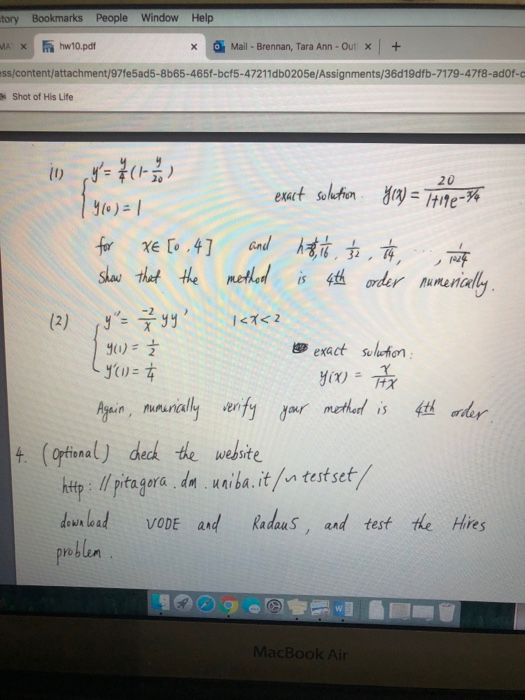 tory Bookmarks People Window Help
x hw10.pdf x Mail - Brennan, Tara Ann - Out x +
ess/content/attachment/97fe5ad5-8b65-465f-bcf5-47211db0205e/Assignments/36d19dfb-7179-47f8-ad0f-
Shot of His Life
(1) { y' = y/4 (1 - y/20)
y(0) = 1
exact solution. y(x) = 20/(1+19e^-x/4)
for x∈ [0, 4] and h= 1/8, 1/16, 1/32, 1/64, , 1/1024
Show that the method is 4th order numerically.
(2) { y'' = -2/x yy' 1<x<2
y(1) = 1/2
y'(1) = 1/4
exact solution:
y(x) = x/(1+x)
Again, numerically verify your method is 4th order
4. (Optional) check the website
http://pitagora.dm.uniba.it/~testset/
download VODE and Radau5, and test the Hires
problem.
W
MacBook Air